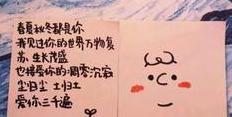 春夏秋冬都是你
我见过你的世界万物复
苏、生长茂盛
也接受你的凋零沉寂
尘归尘 土归土
爱你三千遍